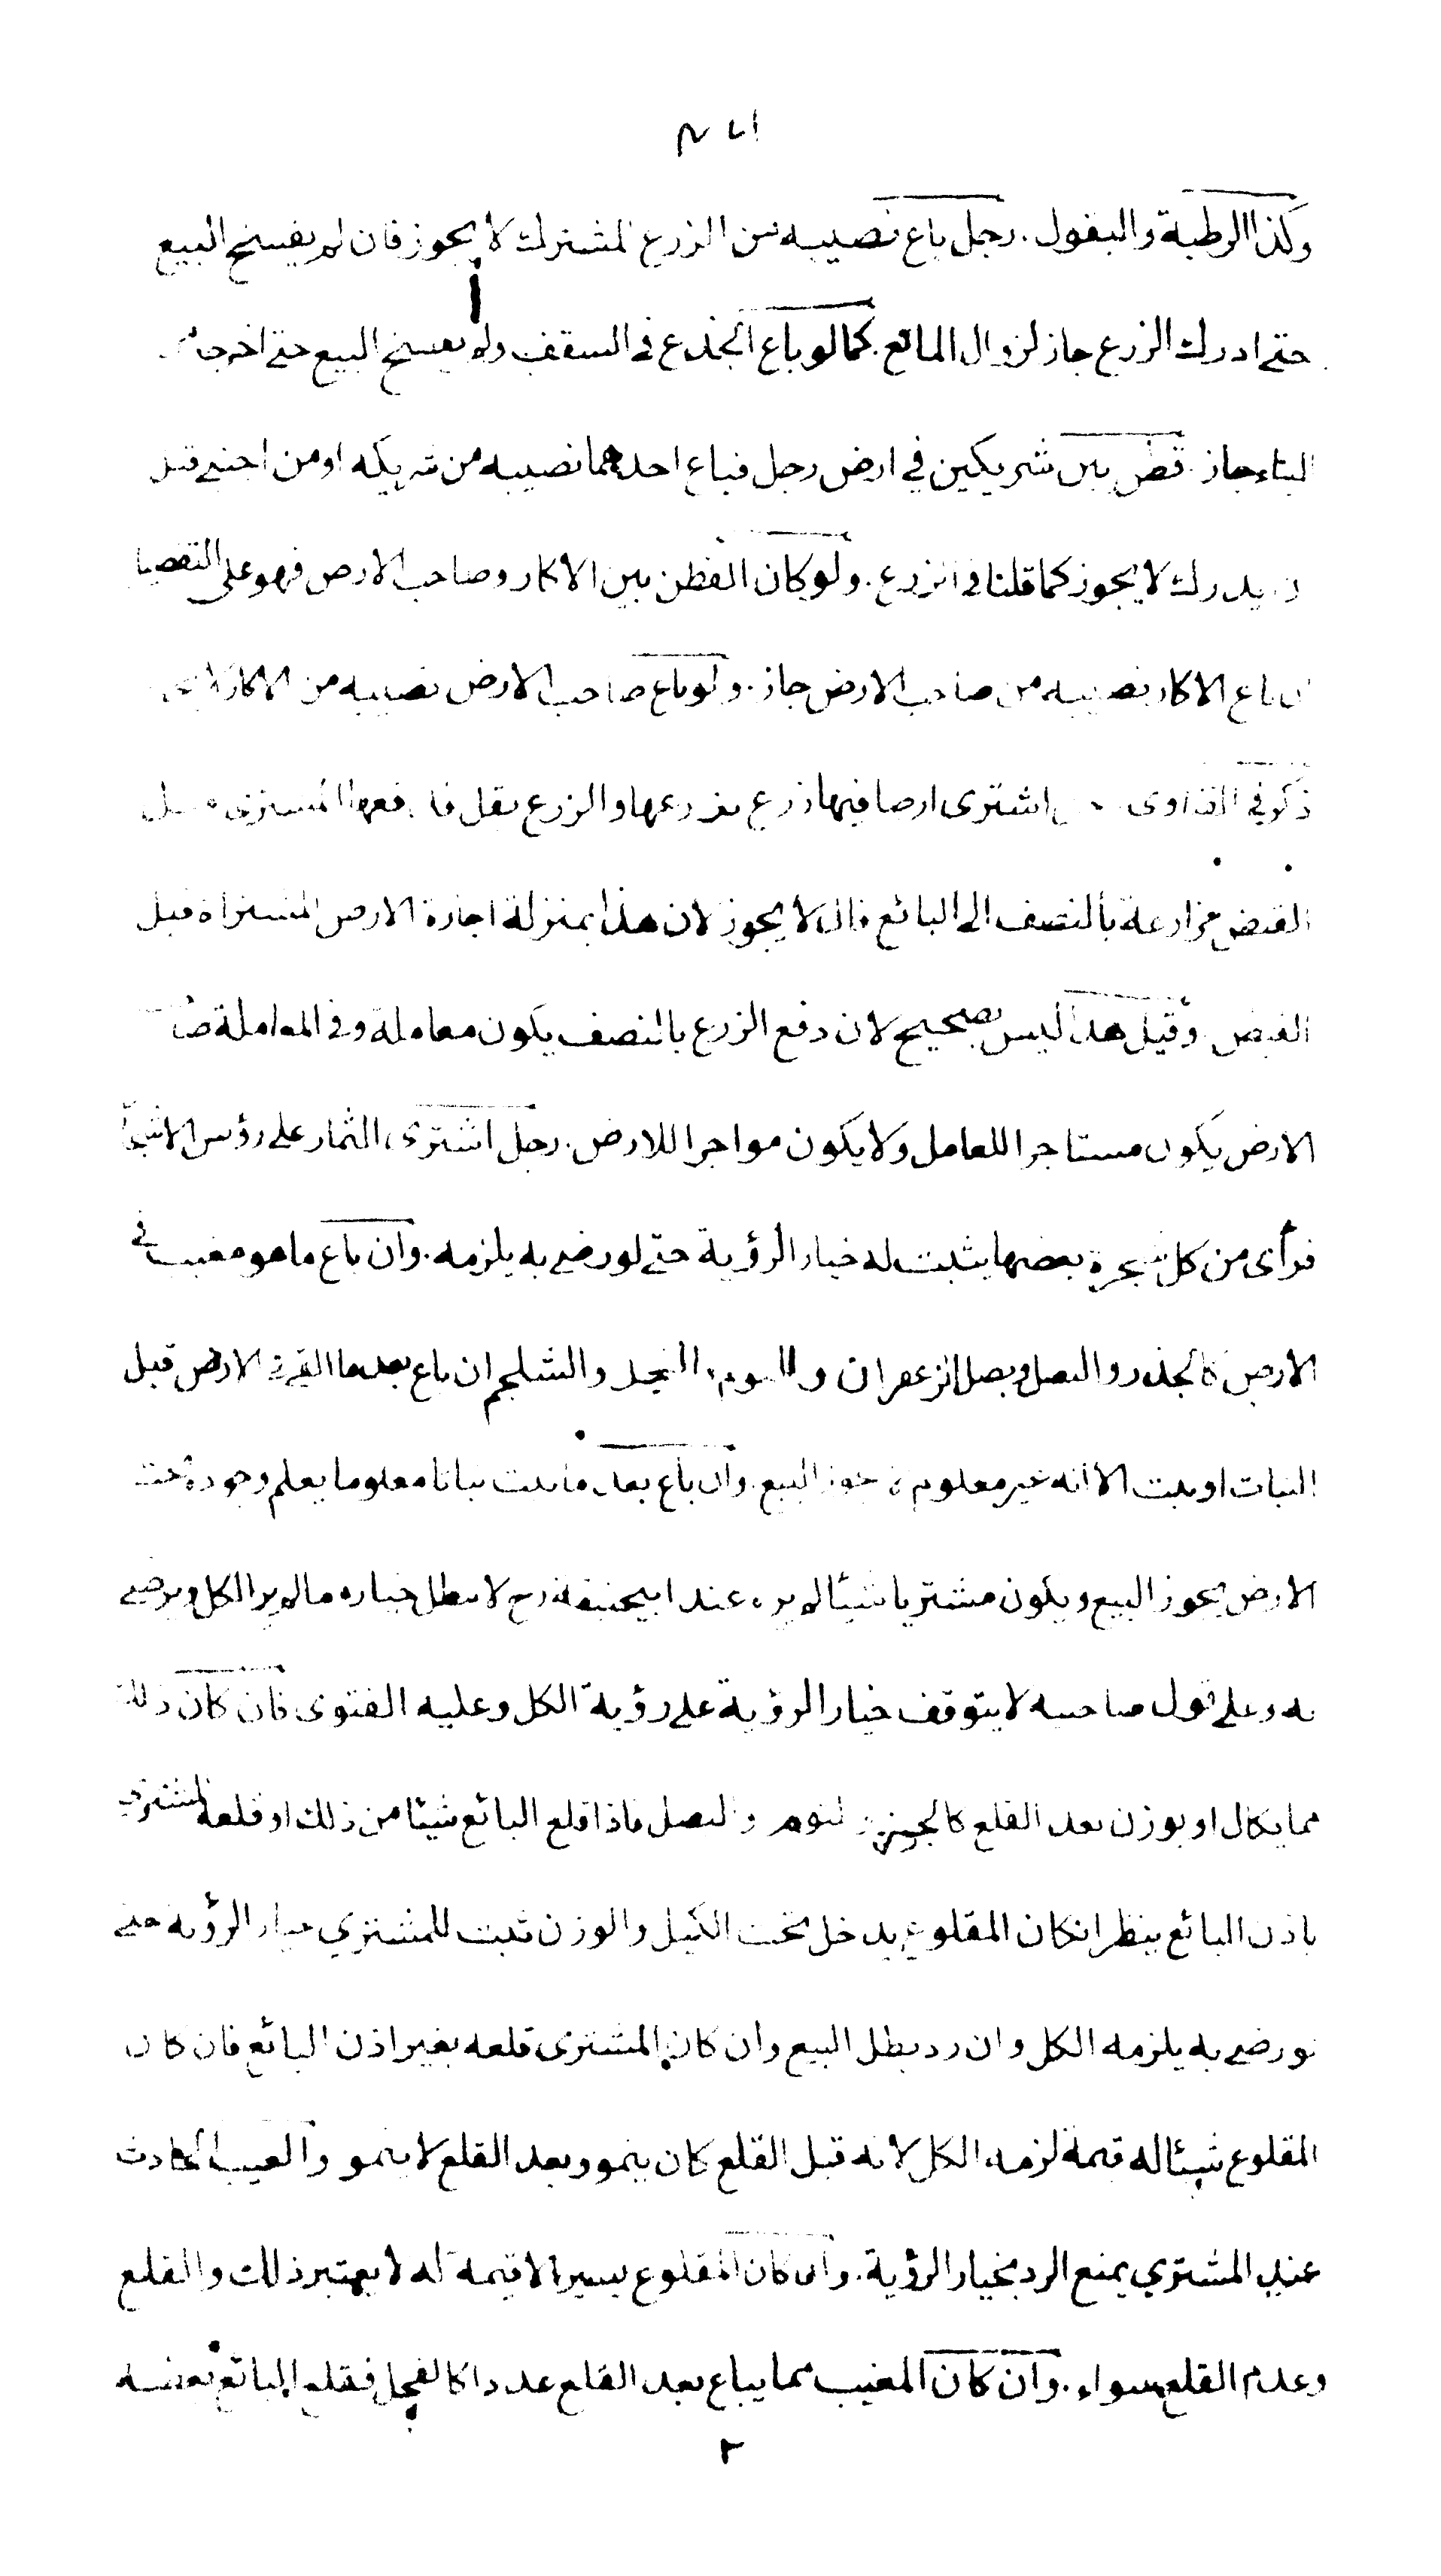 وكذا الرطبة والبقول . رجل باع نصيبه من الزرع المشترك لا يجوز فان لم يفسخ البيع
حتى ادرك الزرع جاز لزوال المانع . كما لو باع الجذع في السقف ولم يفسخ البيع حتى اخرجه
البناء جاز . قطن بين شريكين في ارض رجل فباع احدهما نصيبه من شريكه او من اجنبي قبل
ان يدرك لا يجوز كما قلنا في الزرع . ولو كان القطن بين الاكار وصاحب الارض فهو على التفصيل
ان باع الاكار نصيبه من صاحب الارض جاز . ولو باع صاحب الارض نصيبه من الاكار
ذكر في الفتاوى اشترى ارضا فيها زرع بزرعها والزرع بقل فدفعها المشترى قبل
القبض مزارعة بالنصف الى البائع قال لا يجوز لان هذا بمنزلة اجارة الارض المشتراة قبل
القبض . وقيل هذا ليس بصحيح لان دفع الزرع بالنصف يكون معاملة وفي المعاملة صاحب
الارض يكون مستاجرا للعامل ولا يكون مواجرا للارض . رجل اشترى الثمار على رؤس الاشجار
فرأى من كل شجرة بعضها يثبت له خيار الرؤية حتى لو رضي به يلزمه . وان باع ما هو مغيب في
الارض كالجزر والبصل وبصل الزعفران والثوم والفجل والشلجم ان باع بعد ما القي في الارض قبل
النبات او نبت الا انه غير معلوم لا يجوز البيع . وان باع بعد ما نبت نباتا معلوما يعلم وجوده تحت
الارض يجوز البيع ويكون مشتريا شيئا لم يره عند ابيحنيفة رح لا يبطل خياره ما لم ير الكل ويرضى
به وعلى قول صاحبيه لا يتوقف خيار الرؤية على رؤية الكل وعليه الفتوى فان كان ذلك
مما يكال او يوزن بعد القلع كالجزر والثوم والبصل فاذا قلع البائع شيئا من ذلك او قلعه المشترى
باذن البائع ينظر انكان المقلوع يدخل تحت الكيل والوزن ثبت للمشتري خيار الرؤية حتى
لو رضي به يلزمه الكل وان رد بطل البيع وان كان المشترى قلعه بغير اذن البائع فان كان
المقلوع شيئا له قيمة لزمه الكل لانه قبل القلع كان ينمو وبعد القلع لا ينمو والعيب الحادث
عند المشتري يمنع الرد بخيار الرؤية . وان كان المقلوع يسيرا لا قيمة له لا يعتبر ذلك والقلع
وعدم القلع سواء . وان كان المغيب مما يباع بعد القلع عددا كالفجل فقلع البائع بعضه
٢